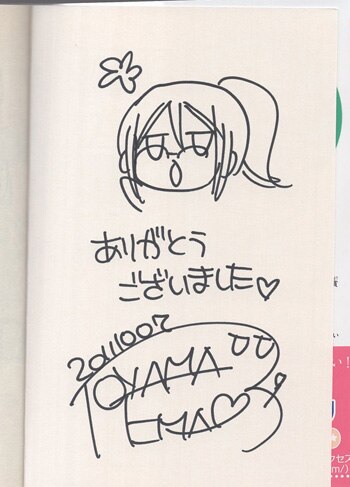 ありがとう
ございました♡
20111007
TOYAMA
EMA♡
い!
クセス
m/)